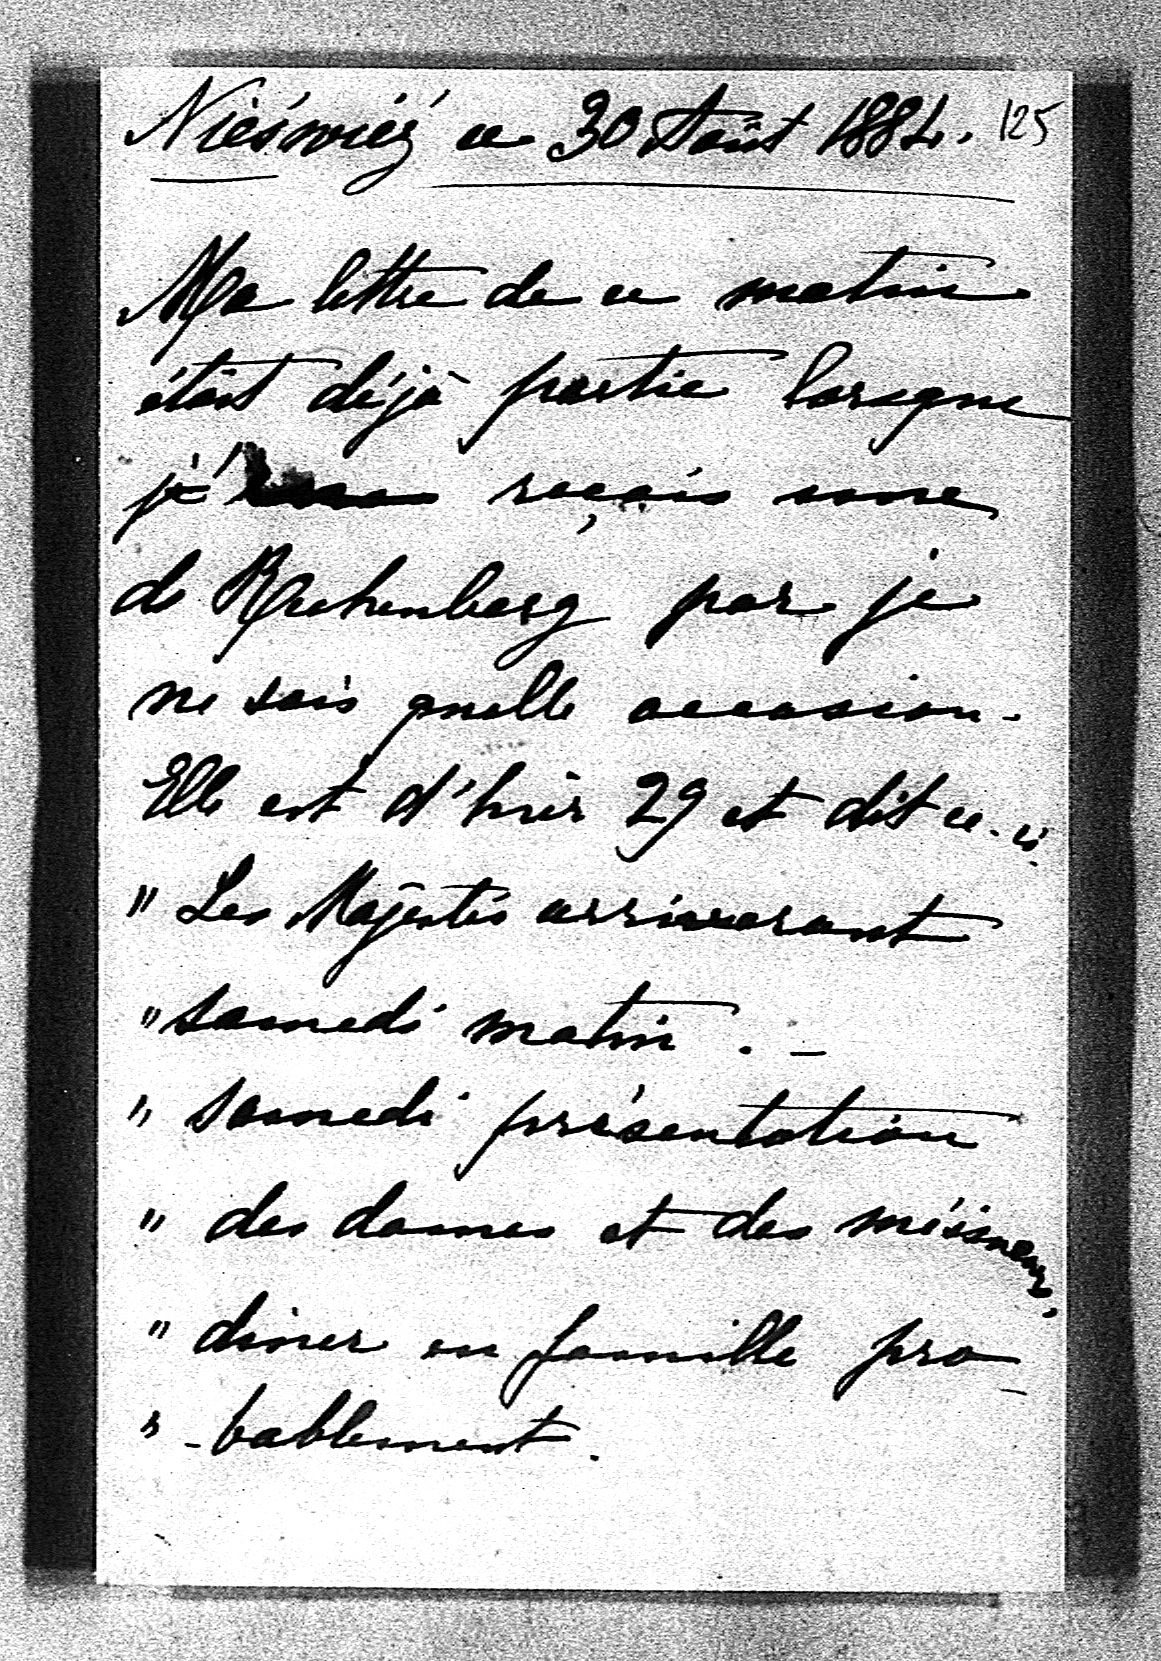 Nieśwież ce 30 Août 1884. 125
Ma lettre de ce matin
était déjà partie lorsque
je reçois une
de Rechenberg par je
ne sais quelle occasion.
Elle est d'hier 29 et dit ce-ci:
" Les Majestés arriveront
" samedi matin. –
" samedi présentation
" des dames et des méssneurs,
" diner en famille pro
" -bablement.